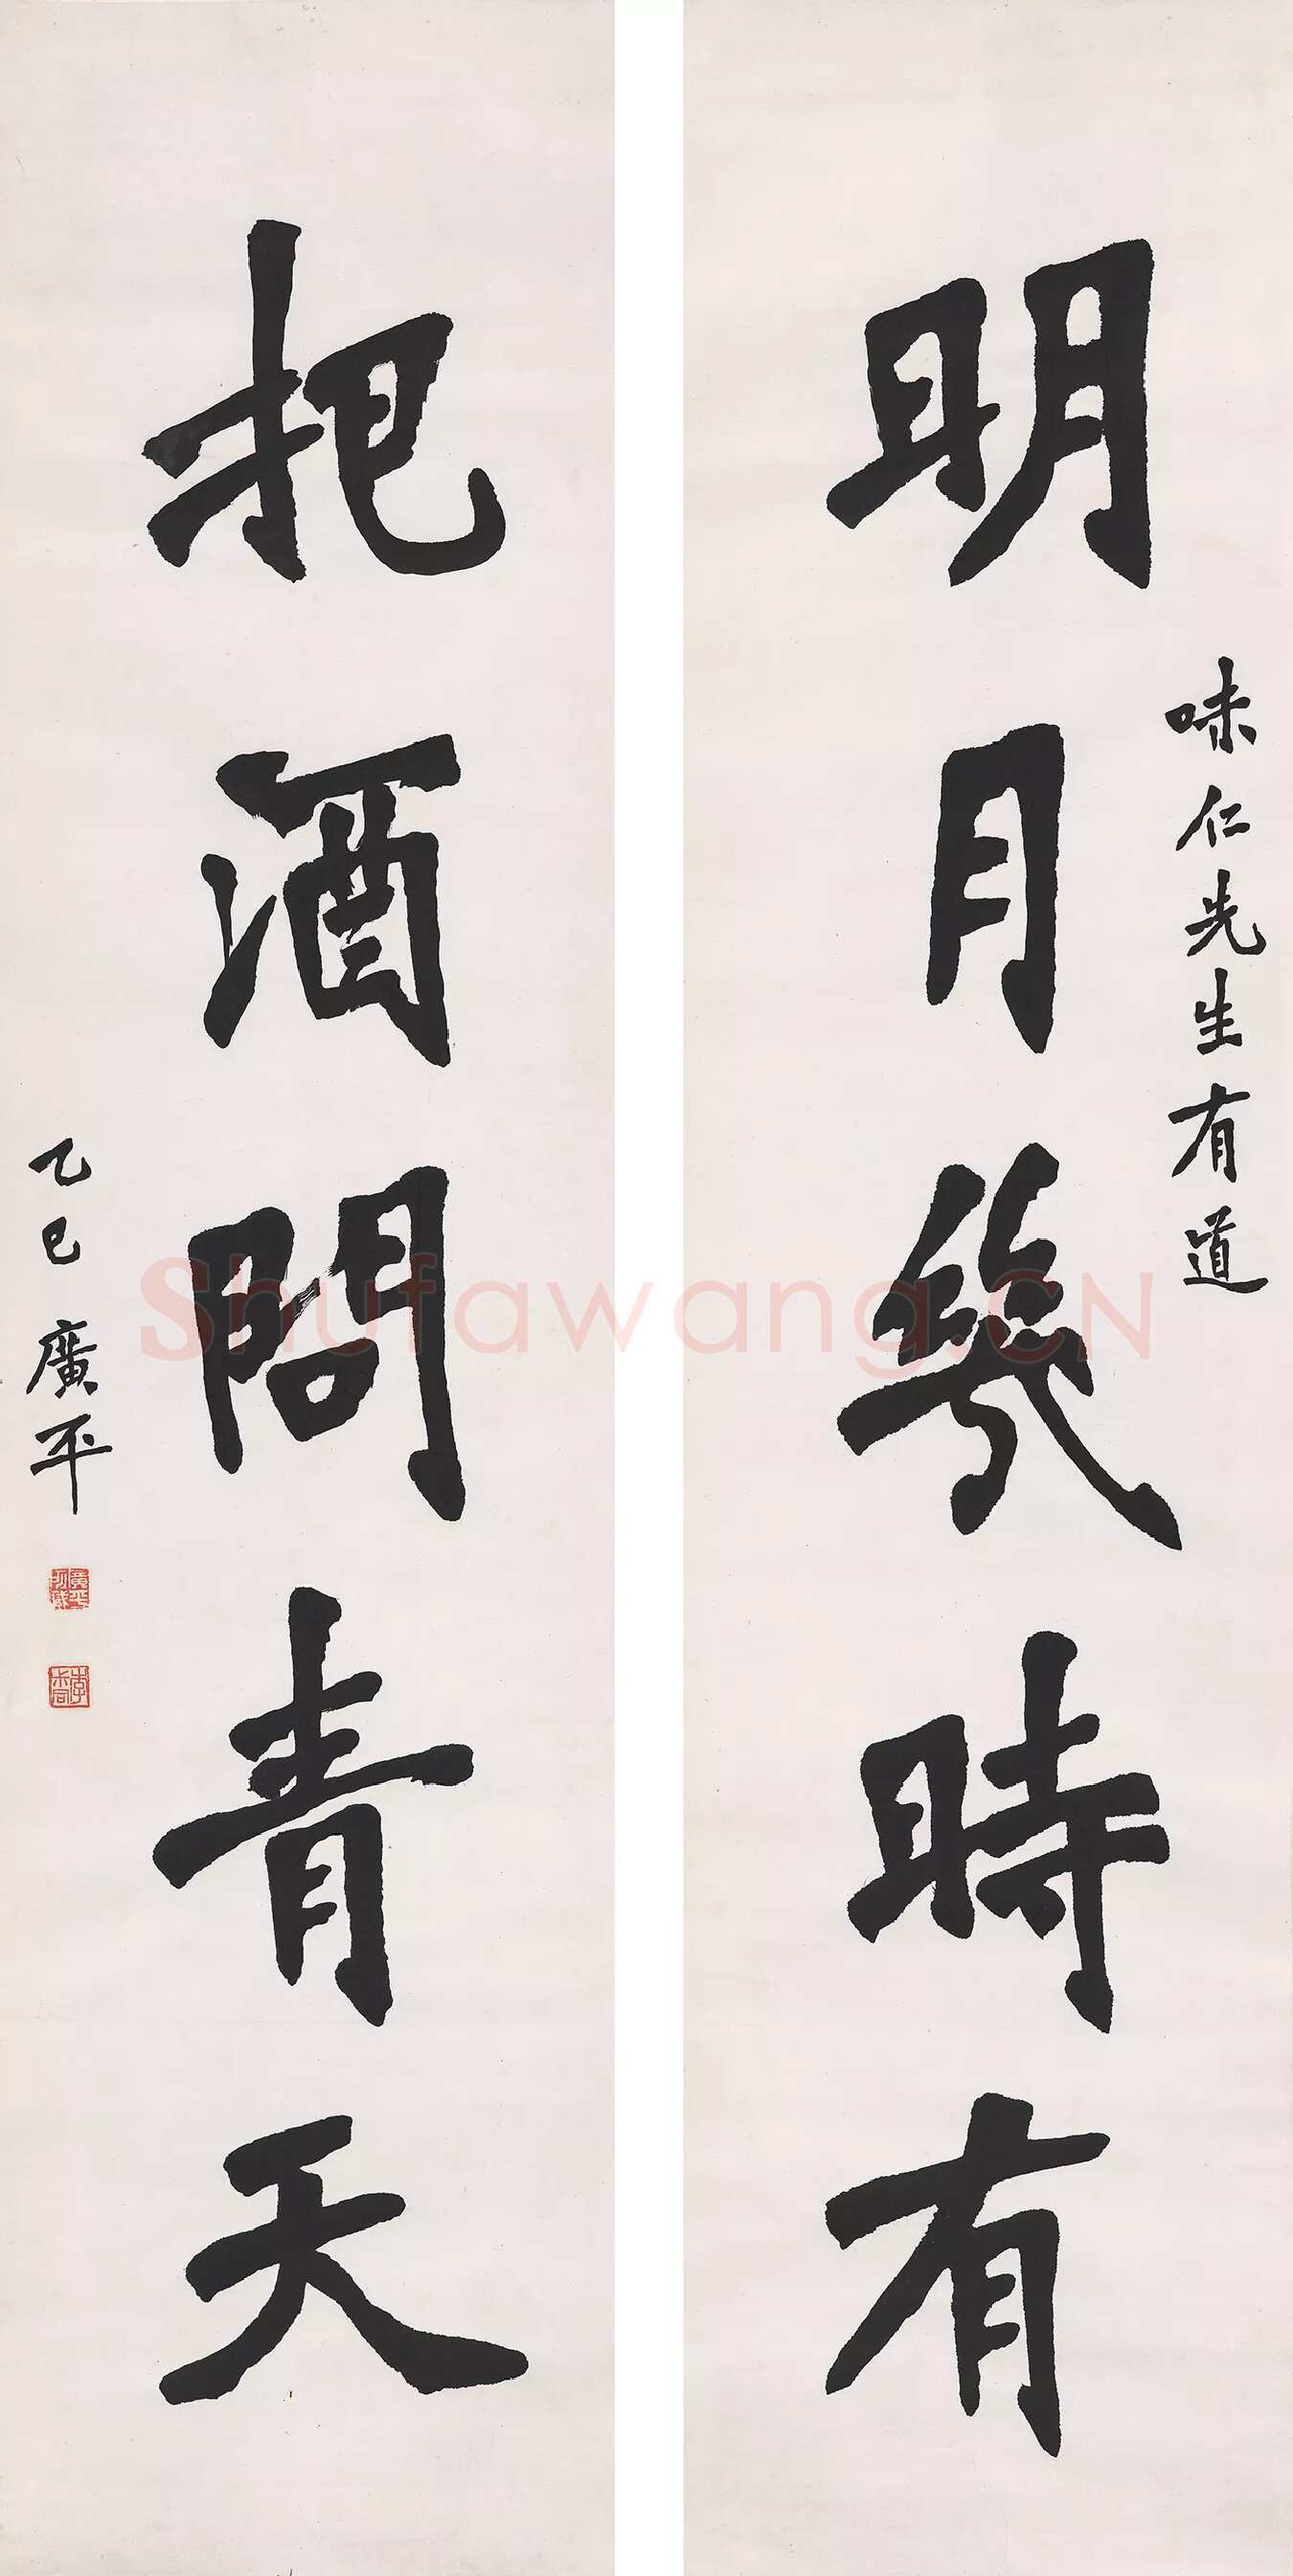 味仁先生有道
明月幾時有
把酒問青天
乙巳廣平
Shufawang.CN